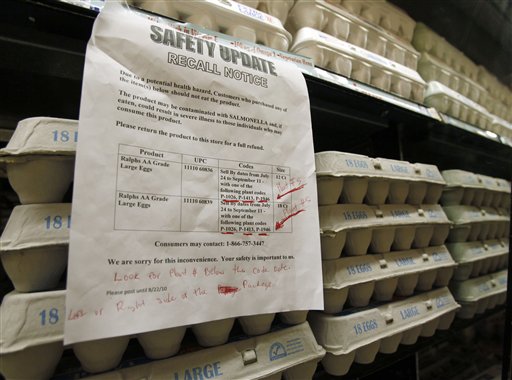 SAFETY UPDATE
RECALL NOTICE
Due to a potential health hazard, Customers who purchased any of
the item(s) below should not eat the product.
The product may be contaminated with SALMONELLA and, if
eaten, could result in severe illness to those individuals who may
consume this product.
Please return the product to this store for a full refund.
Product UPC Codes Size
Ralphs AA Grade
Large Eggs
11110 60836
Sell By dates from July
24 to September 11 -
with one of the
following plant codes
P-1026, P-1413, P-1946
12 Ct
Ralphs AA Grade
Large Eggs
11110 60839
Sell By dates from July
24 to September 11 -
with one of the
following plant codes
P-1026, P-1413, P-1946
18 Ct
Consumers may contact: 1-866-757-3447
We are sorry for this inconvenience. Your safety is important to us.
Look for Plant # Below the Code Date.
Please post until 8/22/10
Left or Right side of the Package.
18 EGGS
18
18
18
LARGE
18 EGGS LARGE
18 EGGS LARGE
18 EGGS LARGE
18 EGGS LARGE